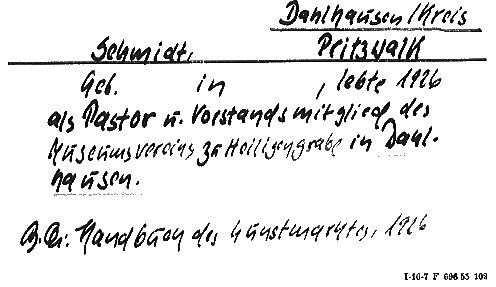 Dahlhausen/Kreis
Schmidt, Pritzwalk
Geb. in , lebte 1926
als Pastor u. Vorstandsmitglied des
Museumsvereins zu Heiligengrabe in Dahl-
hausen.
B.Qu.: Handbuch des Kunstmarktes, 1926
I-10-7 F 696 55 109